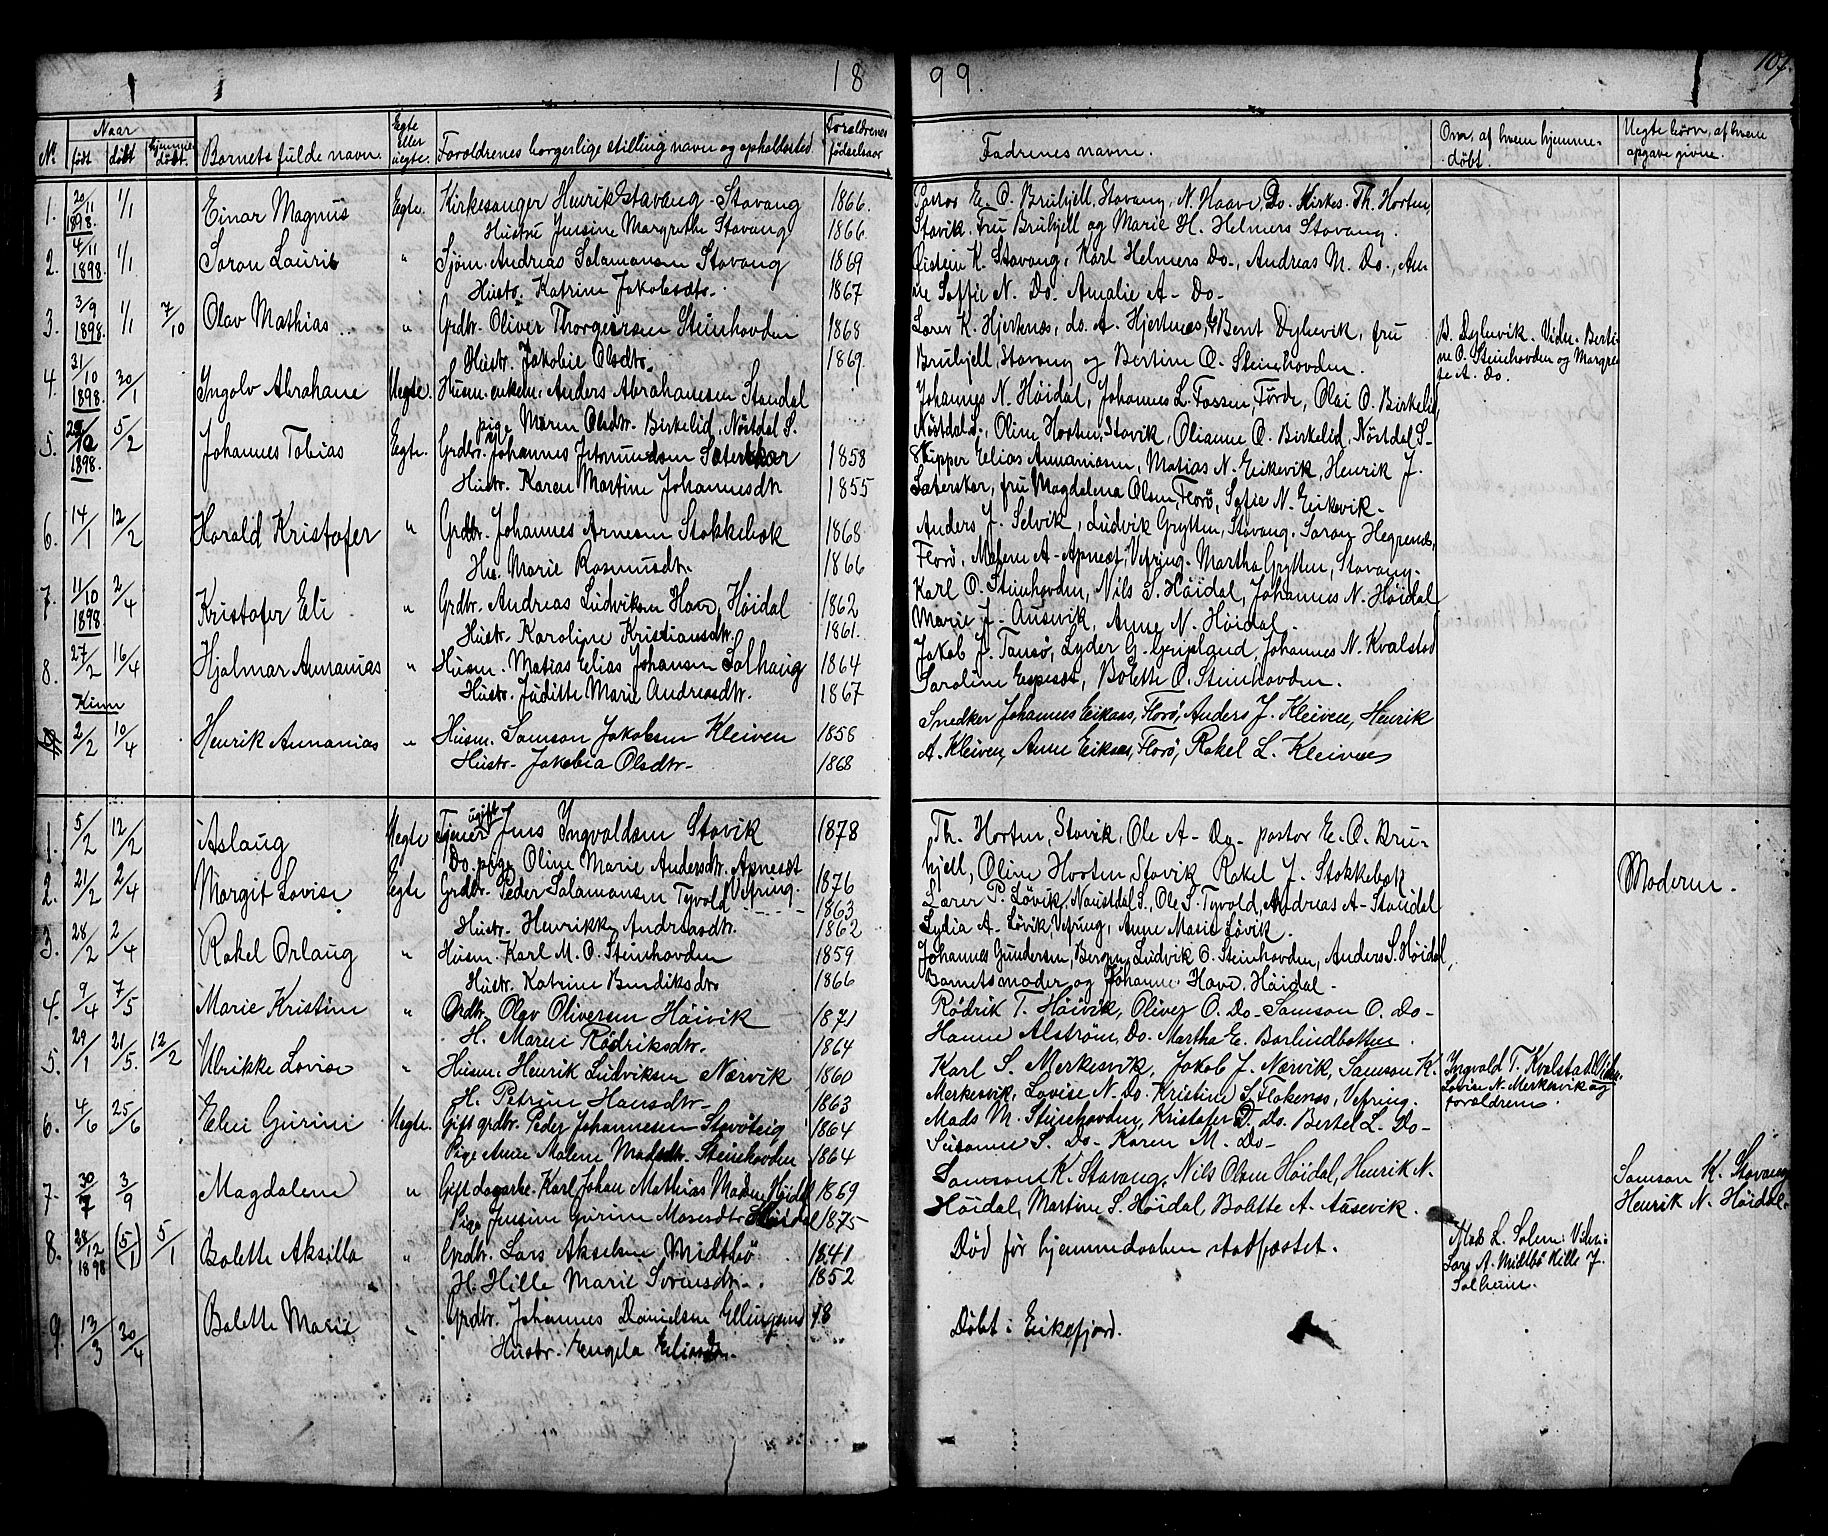 18 99. 107.
No. Naar født døbt hjemmedøbt. Barnets fulde navn. Egte eller uegte. Forældrenes borgerlige stilling navn og opholdssted Forældrenes fødselsaar
Fadrenes navne. Om, af hvem hjemmedøbt. Uegte børn, af hvem opgave givne.
1. 20/11 1898. 1/1 Einar Magnus Egte. Kirkesanger Henrik Stavang - Stavang 1866.
Hustru Jensine Margrethe Stavang 1866.
Pastor E. O. Bruhjell, Stavang, N. Haave, Do. Kirkes. Th. Horten,
Stavik. Fru Bruhjell og Marie H. Helmers Stavang.
2. 4/11 1898. 1/1 Søren Laurits " Sjøm. Andreas Salamonsen Stavang 1869
Hustr. Katrine Jakobsdtr. 1867
Øistein K. Stavang, Karl Helmers Do., Andreas M. Do., An-
ne Soffie N. Do. Amalie A- Do-
3. 3/9 1898. 1/1 7/10 Olav Mathias " Grdbr. Oliver Thorgeirsen Steinhovden 1868
Hustr. Jakobie Olsdtr. 1869.
Lærer K. Hjertenes, do. A. Hjertenes, Bent Dybevik, fru
Bruhjell, Stavang og Bertine O. Steinhovden.
B. Dybevik. Viden. Berti-
ne O. Steinhovden og Margre-
te A. Do.
4 31/10 1898. 30/1 Ingolv Abrahane Uegte. Husm. enkem. Anders Abrahamsen Standal
pige Maren Olsdtr. Birkelid, Nøstdal S.
Johannes N. Høidal, Johannes L. Fossen, Førde, Olai O. Birkelid,
Nøstdal S., Oline Horten, Stavik, Olianne O. Birkelid, Nøstdal S-
5. 1898. 5/2 Johannes Tobias Egte. Grdbr. Johannes Jetmundsen Sæterskar 1858
Hustr. Karen Martine Johannesdtr 1855
Skipper Elias Annaniasen, Matias N. Eikevik, Henrik J.
Sæterskar, fru Magdalena Olsen, Florø, Sofie N. Eikevik-
6 14/1 12/2 Harald Kristofer " Grdbr. Johannes Arnesen Stokkebøk 1868
Hu. Marie Rasmusdtr. 1866
Anders J. Selvik, Ludvik Grytten, Stavang. Søren Hegrenes,
Florø, Malene A- Apnesæt, Vefring. Martha Grytten, Stavang-
7. 11/10 1898 2/4 Kristofer Eli " Grdbr. Andreas Ludviksen Have, Høidal 1862
Hustr. Karoline Kristiansdtr. 1861.
Karl O. Steinhovden, Nils S. Høidal, Johannes N. Høidal
Marie J- Ausevik, Anne N. Høidal-
8. 27/2 16/4 Hjalmar Annanias " Husm. Matias Elias Johansen Solhaug 1864
Hustr. Juditte Marie Andreasdtr. 1867
Jakob J. Tansø, Lyder G. Grepland, Johannes N. Kvalstad
Saroline Espeset, Bolette O. Steinhovden.
Kinn
2/2 10/4 Henrik Annanias " Husm. Samson Jakobsen Kleiven 1858
Hustr- Jakobia Olsdtr- 1868
Snedker Johannes Eikaas, Florø, Anders J. Kleiven, Henrik
A. Kleiven, Anne Eikaas, Florø, Rakel L. Kleiven
1. 5/2 12/2 Aslaug Uegte Tjener ugift Jens Ingvaldsen Stavik 1878
Do. pige Oline Marie Andersdtr. Apnesæt Vefring. 1876
Th. Horten, Stavik, Ole A- Do- pastor E. O. Bru-
hjell, Oline Horten Stavik Rakel J. Stokkebøk
Moderen.
2. 21/2 2/4 Margit Lovise Egte Grdbr. Peder Salamonsen Tyvold 1863
Hustr- Henrikke Andreasdtr. 1862
Lærer P. Løvik, Naustdal S., Ole S. Tyvold, Andreas A- Standal
Lydia A- Løvik, Vefring, Anne Marie Løvik.
3. 28/2 2/4 Rakel Orlaug " Husm. Karl M. O. Steinhovden 1859
Hustr. Katrine Bendiksdtr 1866
Johannes Gundersen, Bergen, Ludvik O. Steinhovden, Anders S. Høidal,
Barnets moder og Johanne Have, Høidal-
4. 9/4 7/5 Marie Kristine " Grdbr. Olav Oliversen Høivik 1871
H. Maren Rødriksdtr. 1864
Rødrik T. Høivik, Oliver O. Do- Samson O. Do-
Hanne Alstrøm, Do. Martha E. Borlindbotten.
5. 29/1 21/5. 12/2 Ulrikke Lovise " Husm. Henrik Ludviksen Nærvik 1860
H. Petrine Hansdtr. 1863
Karl S. Merkesvik, Jakob J. Nærvik, Samson K.
Merkesvik, Lovise N- Do- Kristine S. Flokenes, Vefring.
Ingvald T. Kvalstad Viden.
Lovise N. Merkesvik og
forældrene.
6. 4/6 25/6 Eline Gurine Uegte. Gift grdbr. Peder Johannesen Støvøteig 1864
Pige Anne Malene Madsdtr. Steinhovden 1864
Mads M. Steinehovden, Kristofer T. Do. Bertel L. Do-
Susanne S. Do- Karen M. Do-
7. 30/7 3/9 Magdalene " Gift dagarb. Karl Johan Mathias Madsen Høidal 1869
Pige Jensine Gurine Mosesdtr Høidal 1875
Samson K. Stavang, Nils Olsen Høidal, Henrik N.
Høidal, Martine S. Høidal, Bolette A- Ausevik.
Samson K. Stavang
Henrik N. Høidal.
8. 28/12 1898 (5/1) 5/1 Bolette Aksilla " Grdbr. Lars Akselsen Midtbø 1841
H. Hille Marie Svensdtr. 1852
Død før hjemmedaaben stadfæstet.
Mads L. Solem. Viden:
Lars A. Midtbø Hille J.
Solheim.
9. 13/3 30/4 Bolette Marie " Grdbr. Johannes Danielsen Ellingsund 18
Hustr. Engela Eliasdtr.
Døbt i Eikefjord.